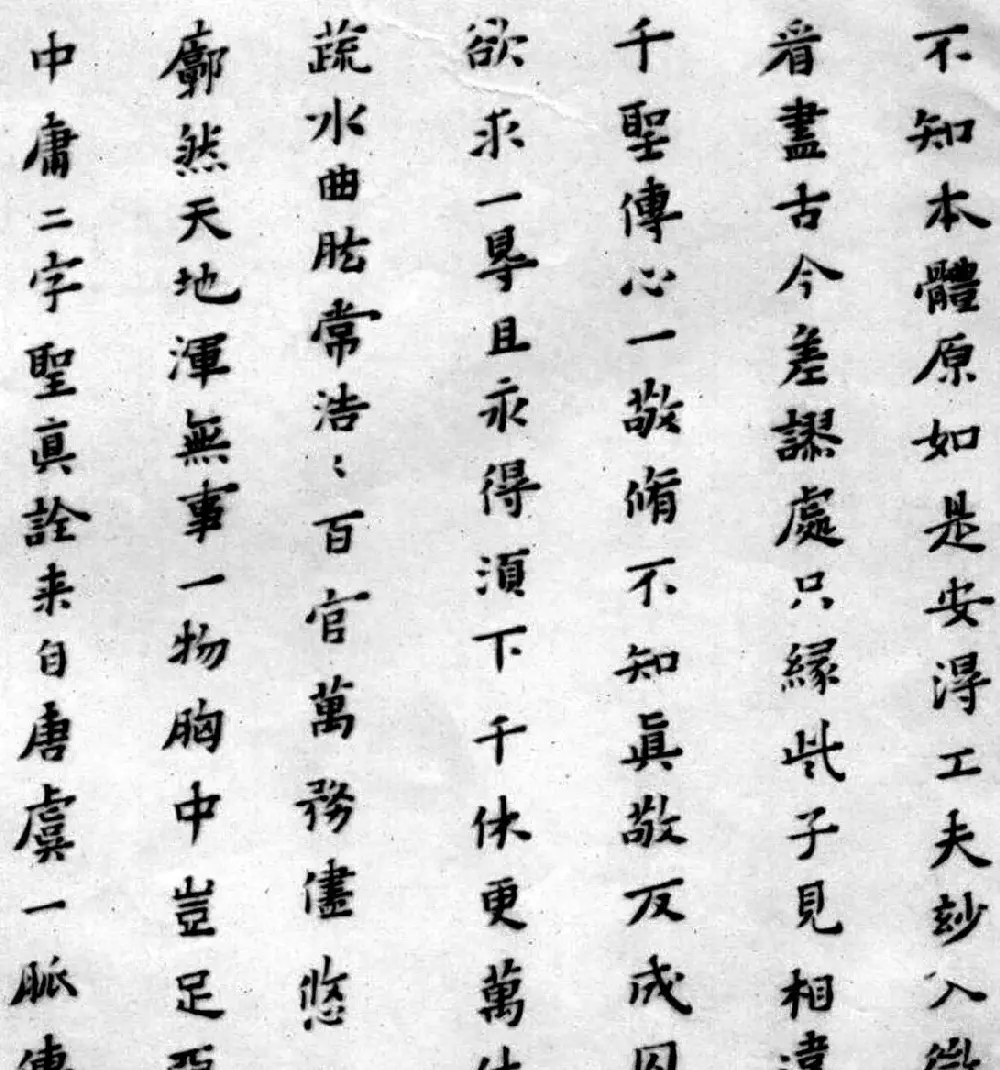 不知本體原如是安得工夫玅入微
看盡古今差謬處只緣此子見相違
千聖傳心一敬脩不知眞敬反成囚
欲求一㝵且永得須下千休更萬休
蔬水曲肱常浩〻百官萬務儘悠
廓然天地渾無事一物胸中豈足
中庸二字聖眞詮来自唐虞一脈傳